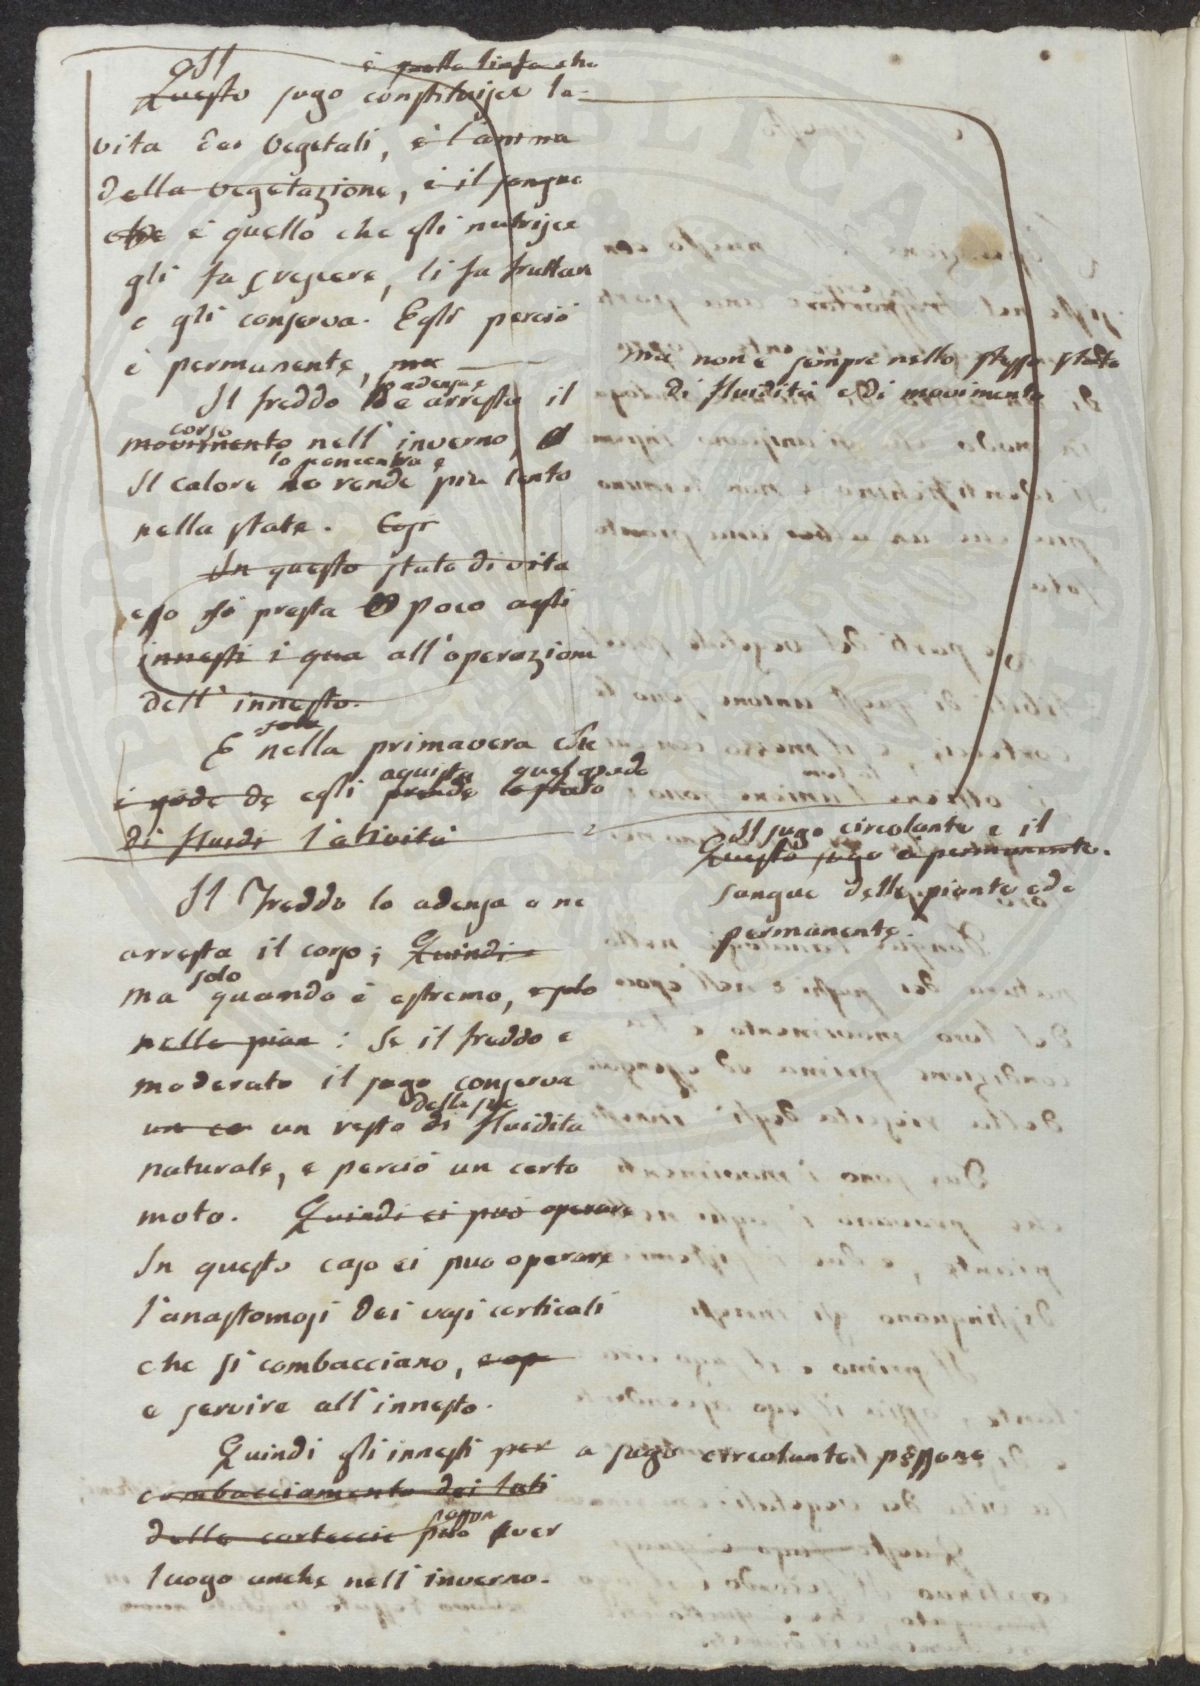 Il è quella linfa che
Questo sugo constituisce la
vita dei Vegetali, è l'anima
della vegetazione, è il sangue
che è quello che gli nutrisce
gli fa crescere, li fa fruttare
e gli conserva. Egli perciò
è permanente, ma
ma non è sempre nello stesso stato
di fluidità e di movimento
lo adensa e
Il freddo ne arresta il
corso
movimento nell'inverno,
lo concentra e
Il calore lo rende più lento
nella state. Così
In questo stato di vita
esso si presta poco agli
innesti i qua all'operazione
dell'innesto.
sola
E nella primavera che
aquista quel grado
e gode de egli prende lo stato
di fluidi l'atività
Il sugo circolante e il
Questo sugo è permanente.
sangue delle piante ed e
permanente.
Il Freddo lo adensa e ne
arresta il corso; Quindi
solo
ma quando è estremo, e solo
nelle pian : Se il freddo e
moderato il sugo conserva
della sua
un cer un resto di fluidità
naturale, e perciò un certo
moto. Quindi si può operare
In questo caso si puo operare
l'anastomosi dei vasi corticali
che si combacciano, e op
e servire all'innesto.
Quindi gli innesti per a sugo circolante possono
combacciamento dei lati
posson
delle corteccie può aver
luogo anche nell'inverno.